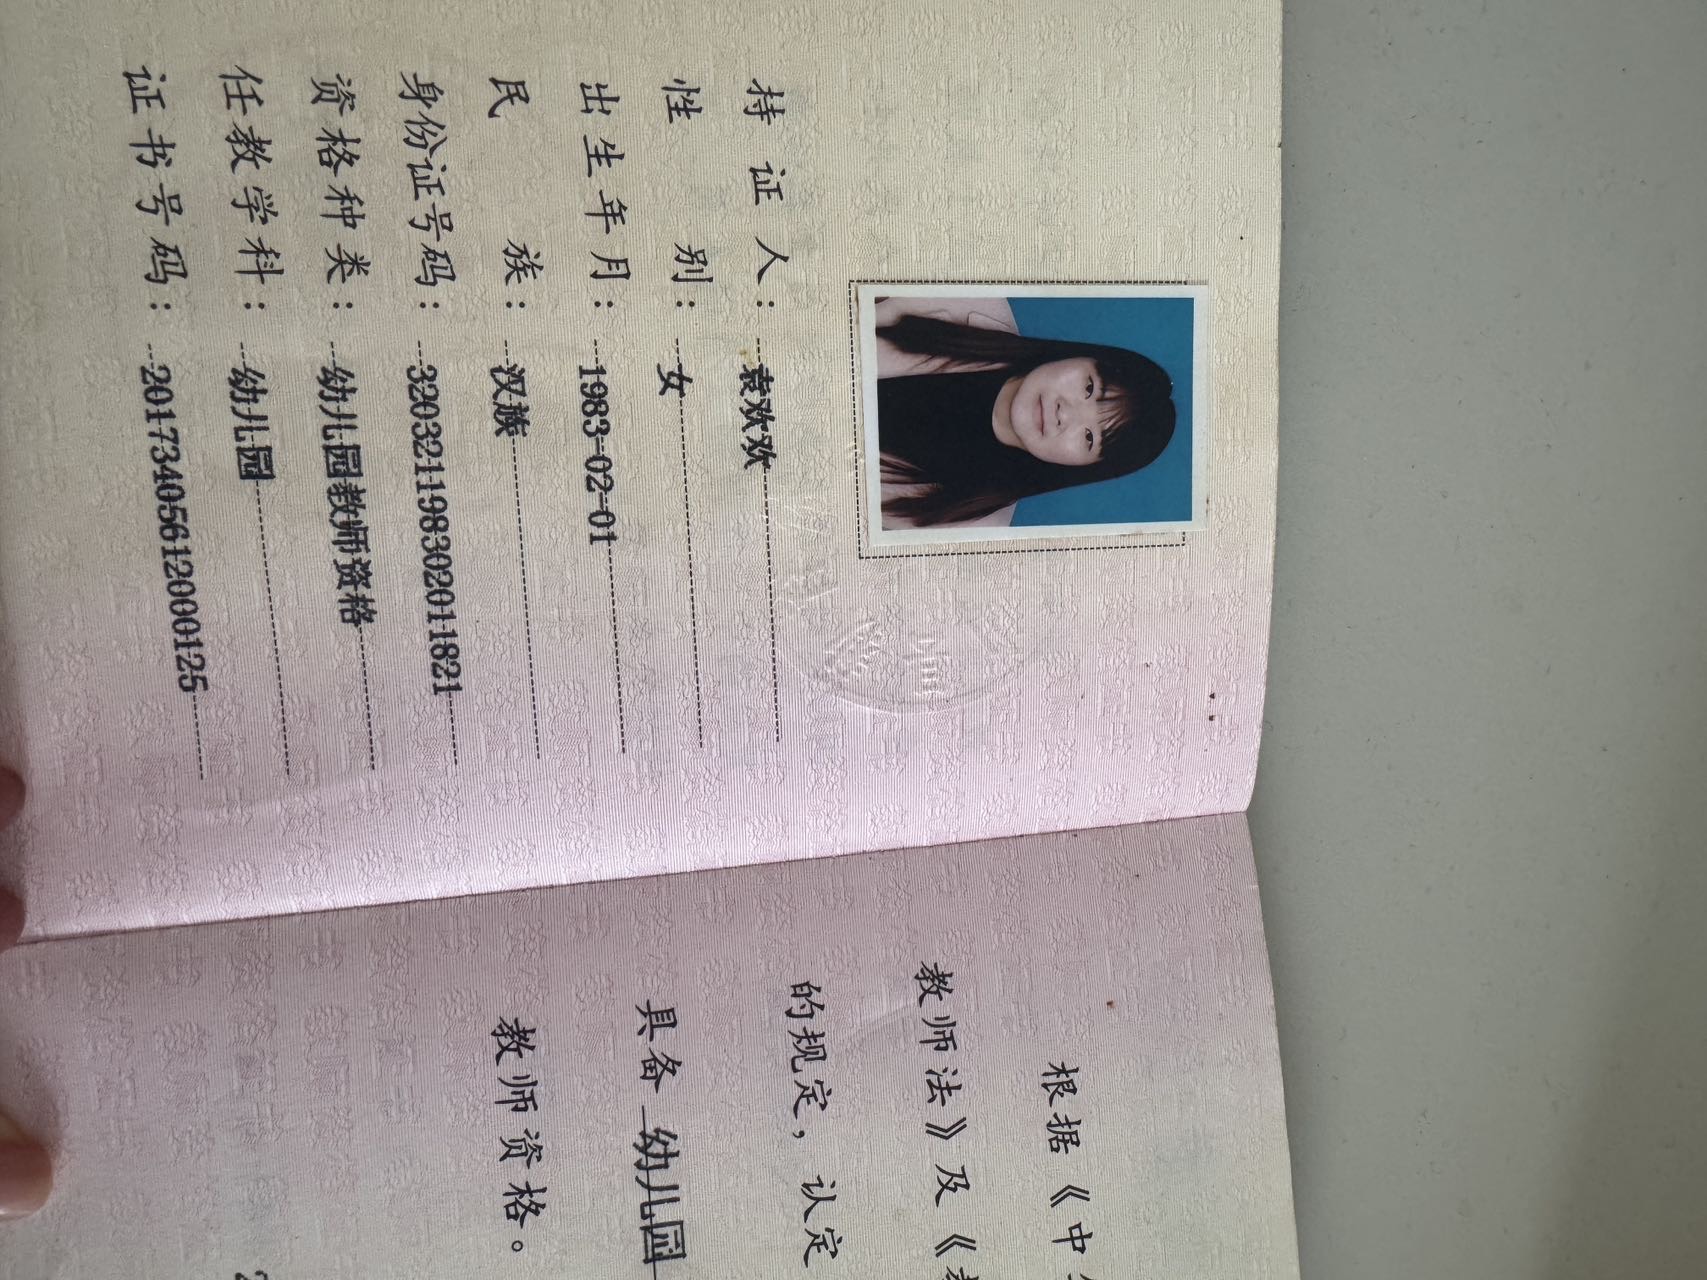 持证人：袁欢欢
性别：女
出生年月：1983-02-01
民族：汉族
身份证号码：320321198302011821
资格种类：幼儿园教师资格
任教学科：幼儿园
证书号码：20173405612000125
根据《中
教师法》及《教
的规定，认定
具备 幼儿园
教师资格。
2